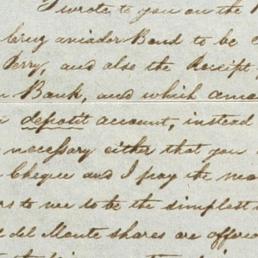 I wrote to you on the
Bond to be
Perry, and also the Receipt
Bank, and which
deposit account, instead
necessary either that you
Cheque and I pay the
to me to be the simplest
del Monte shares are